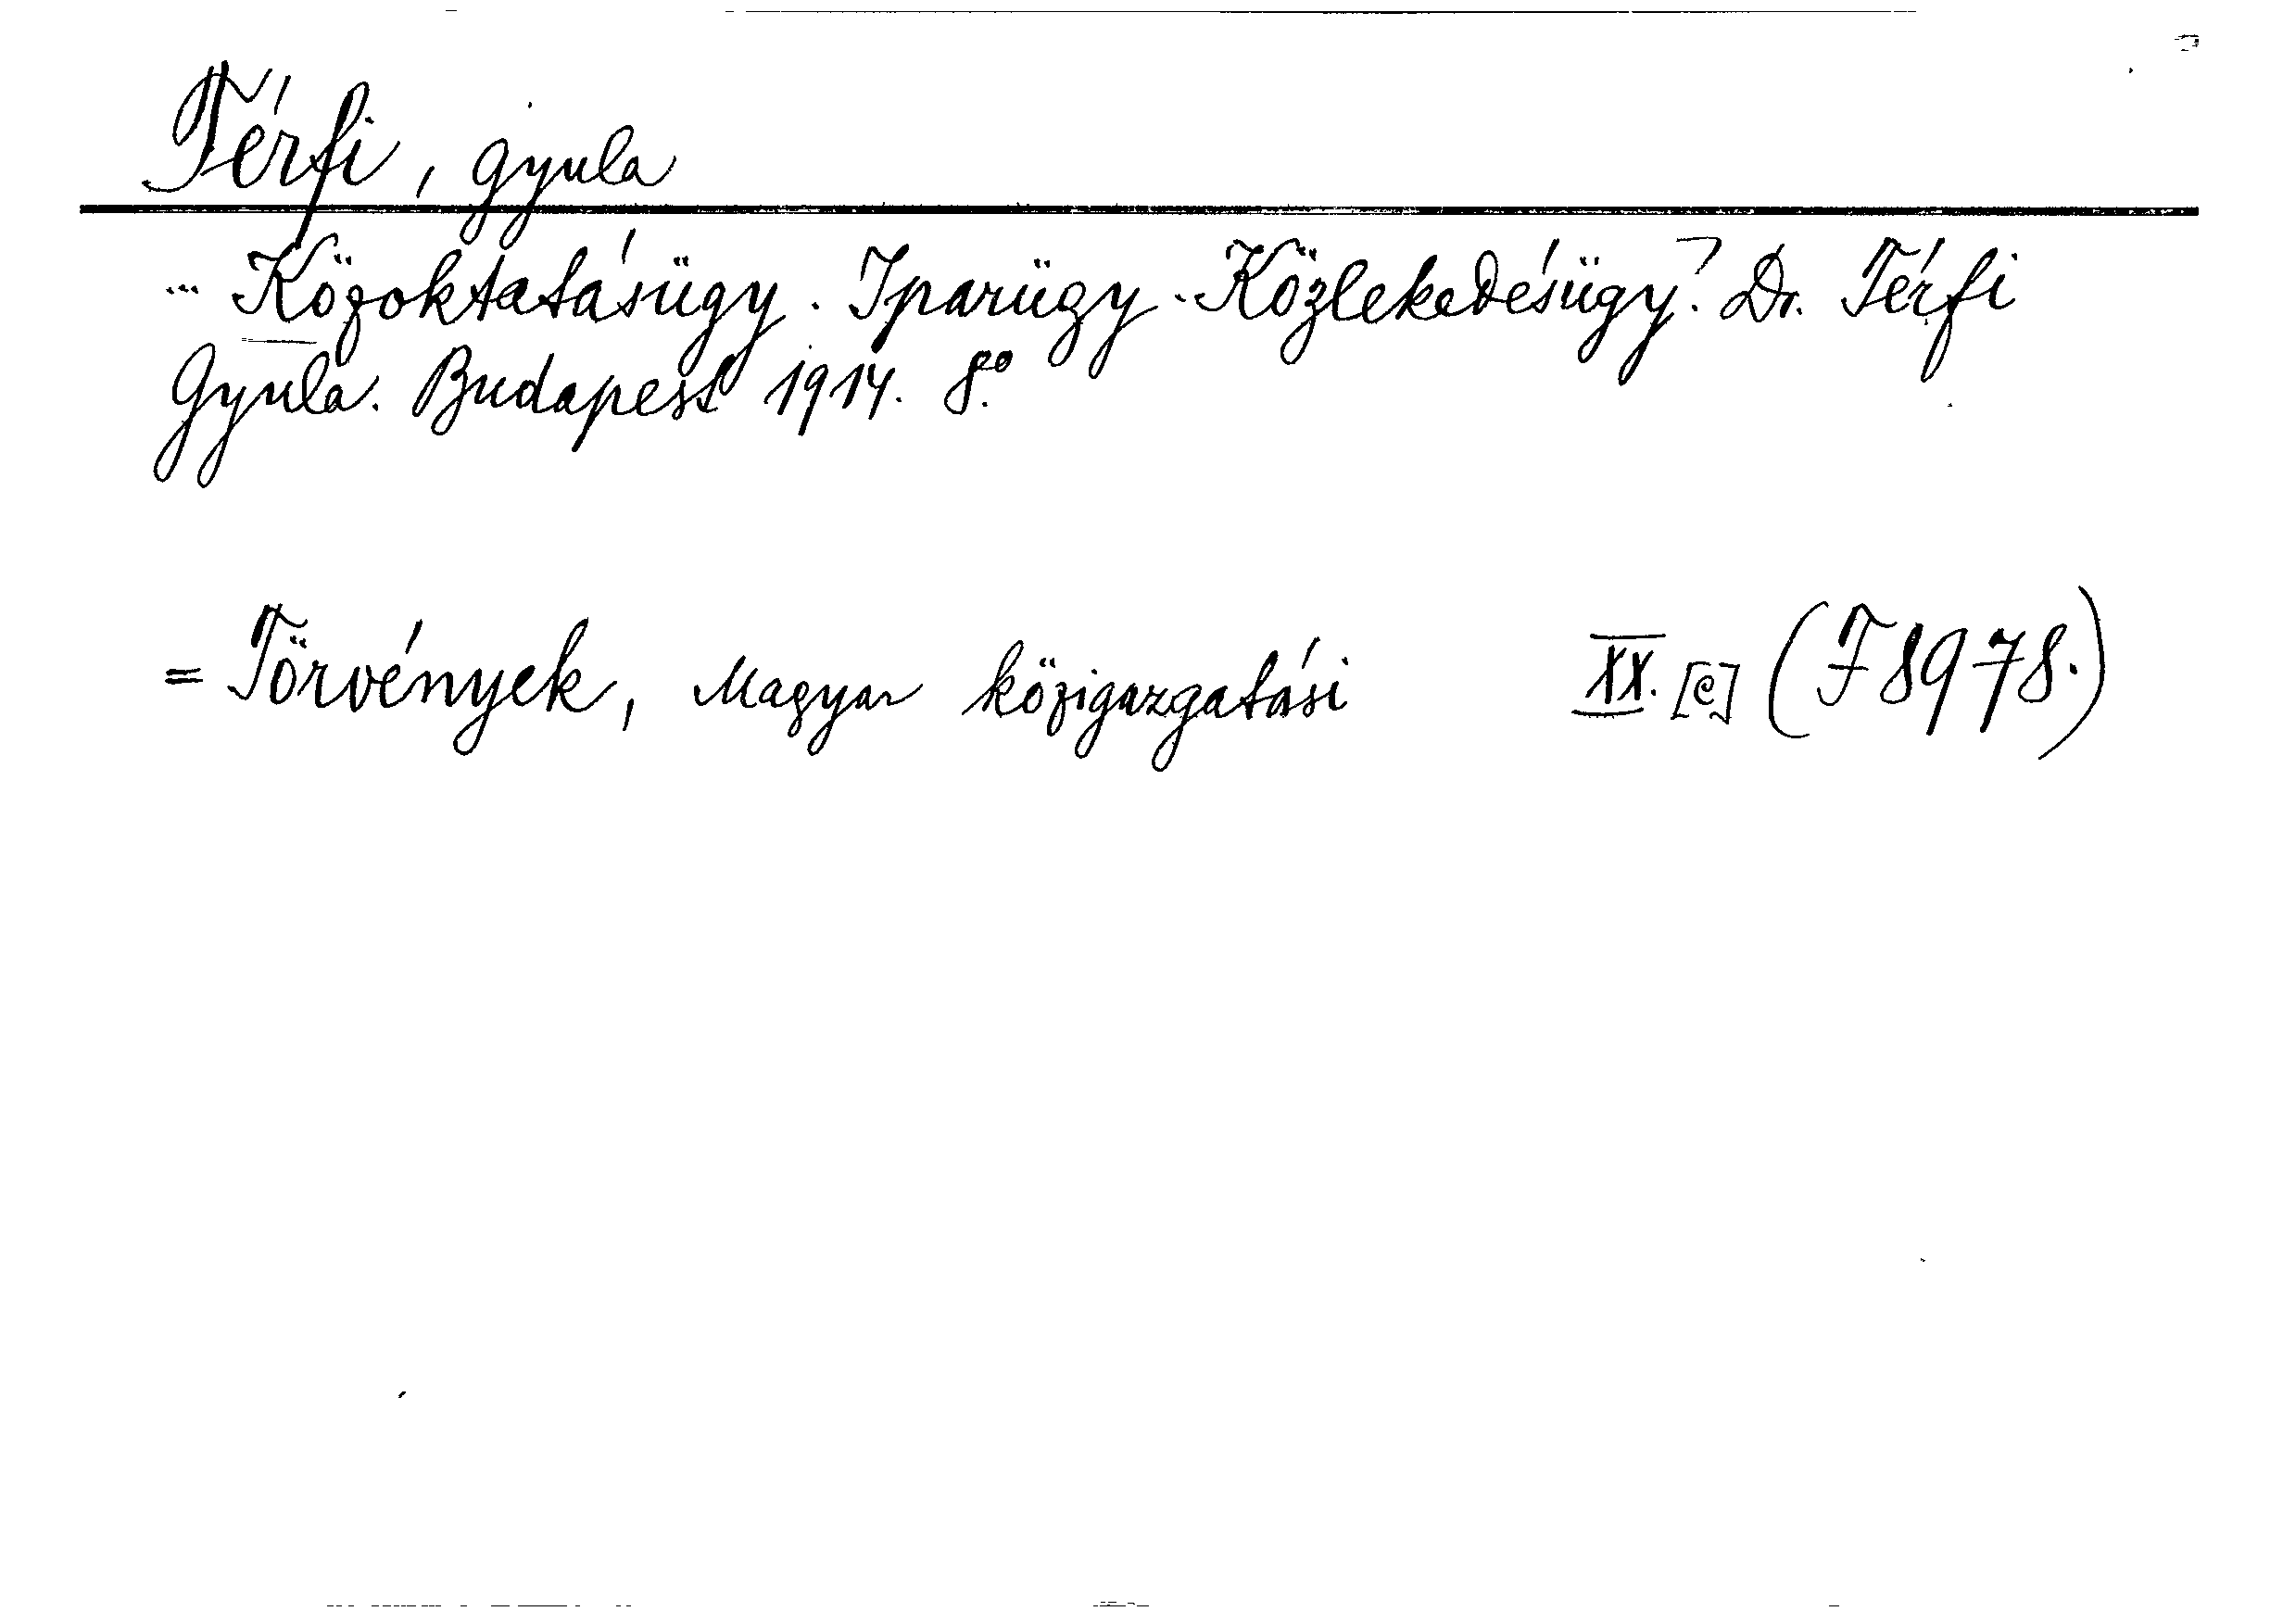 Térfi, Gyula
... Közoktatásügy. Iparügy. Közlekedésügy. Dr. Térfi
Gyula. Budapest 1914. 8°.
= Törvények, Magyar közigazgatási XX. [c] (F 8978.)